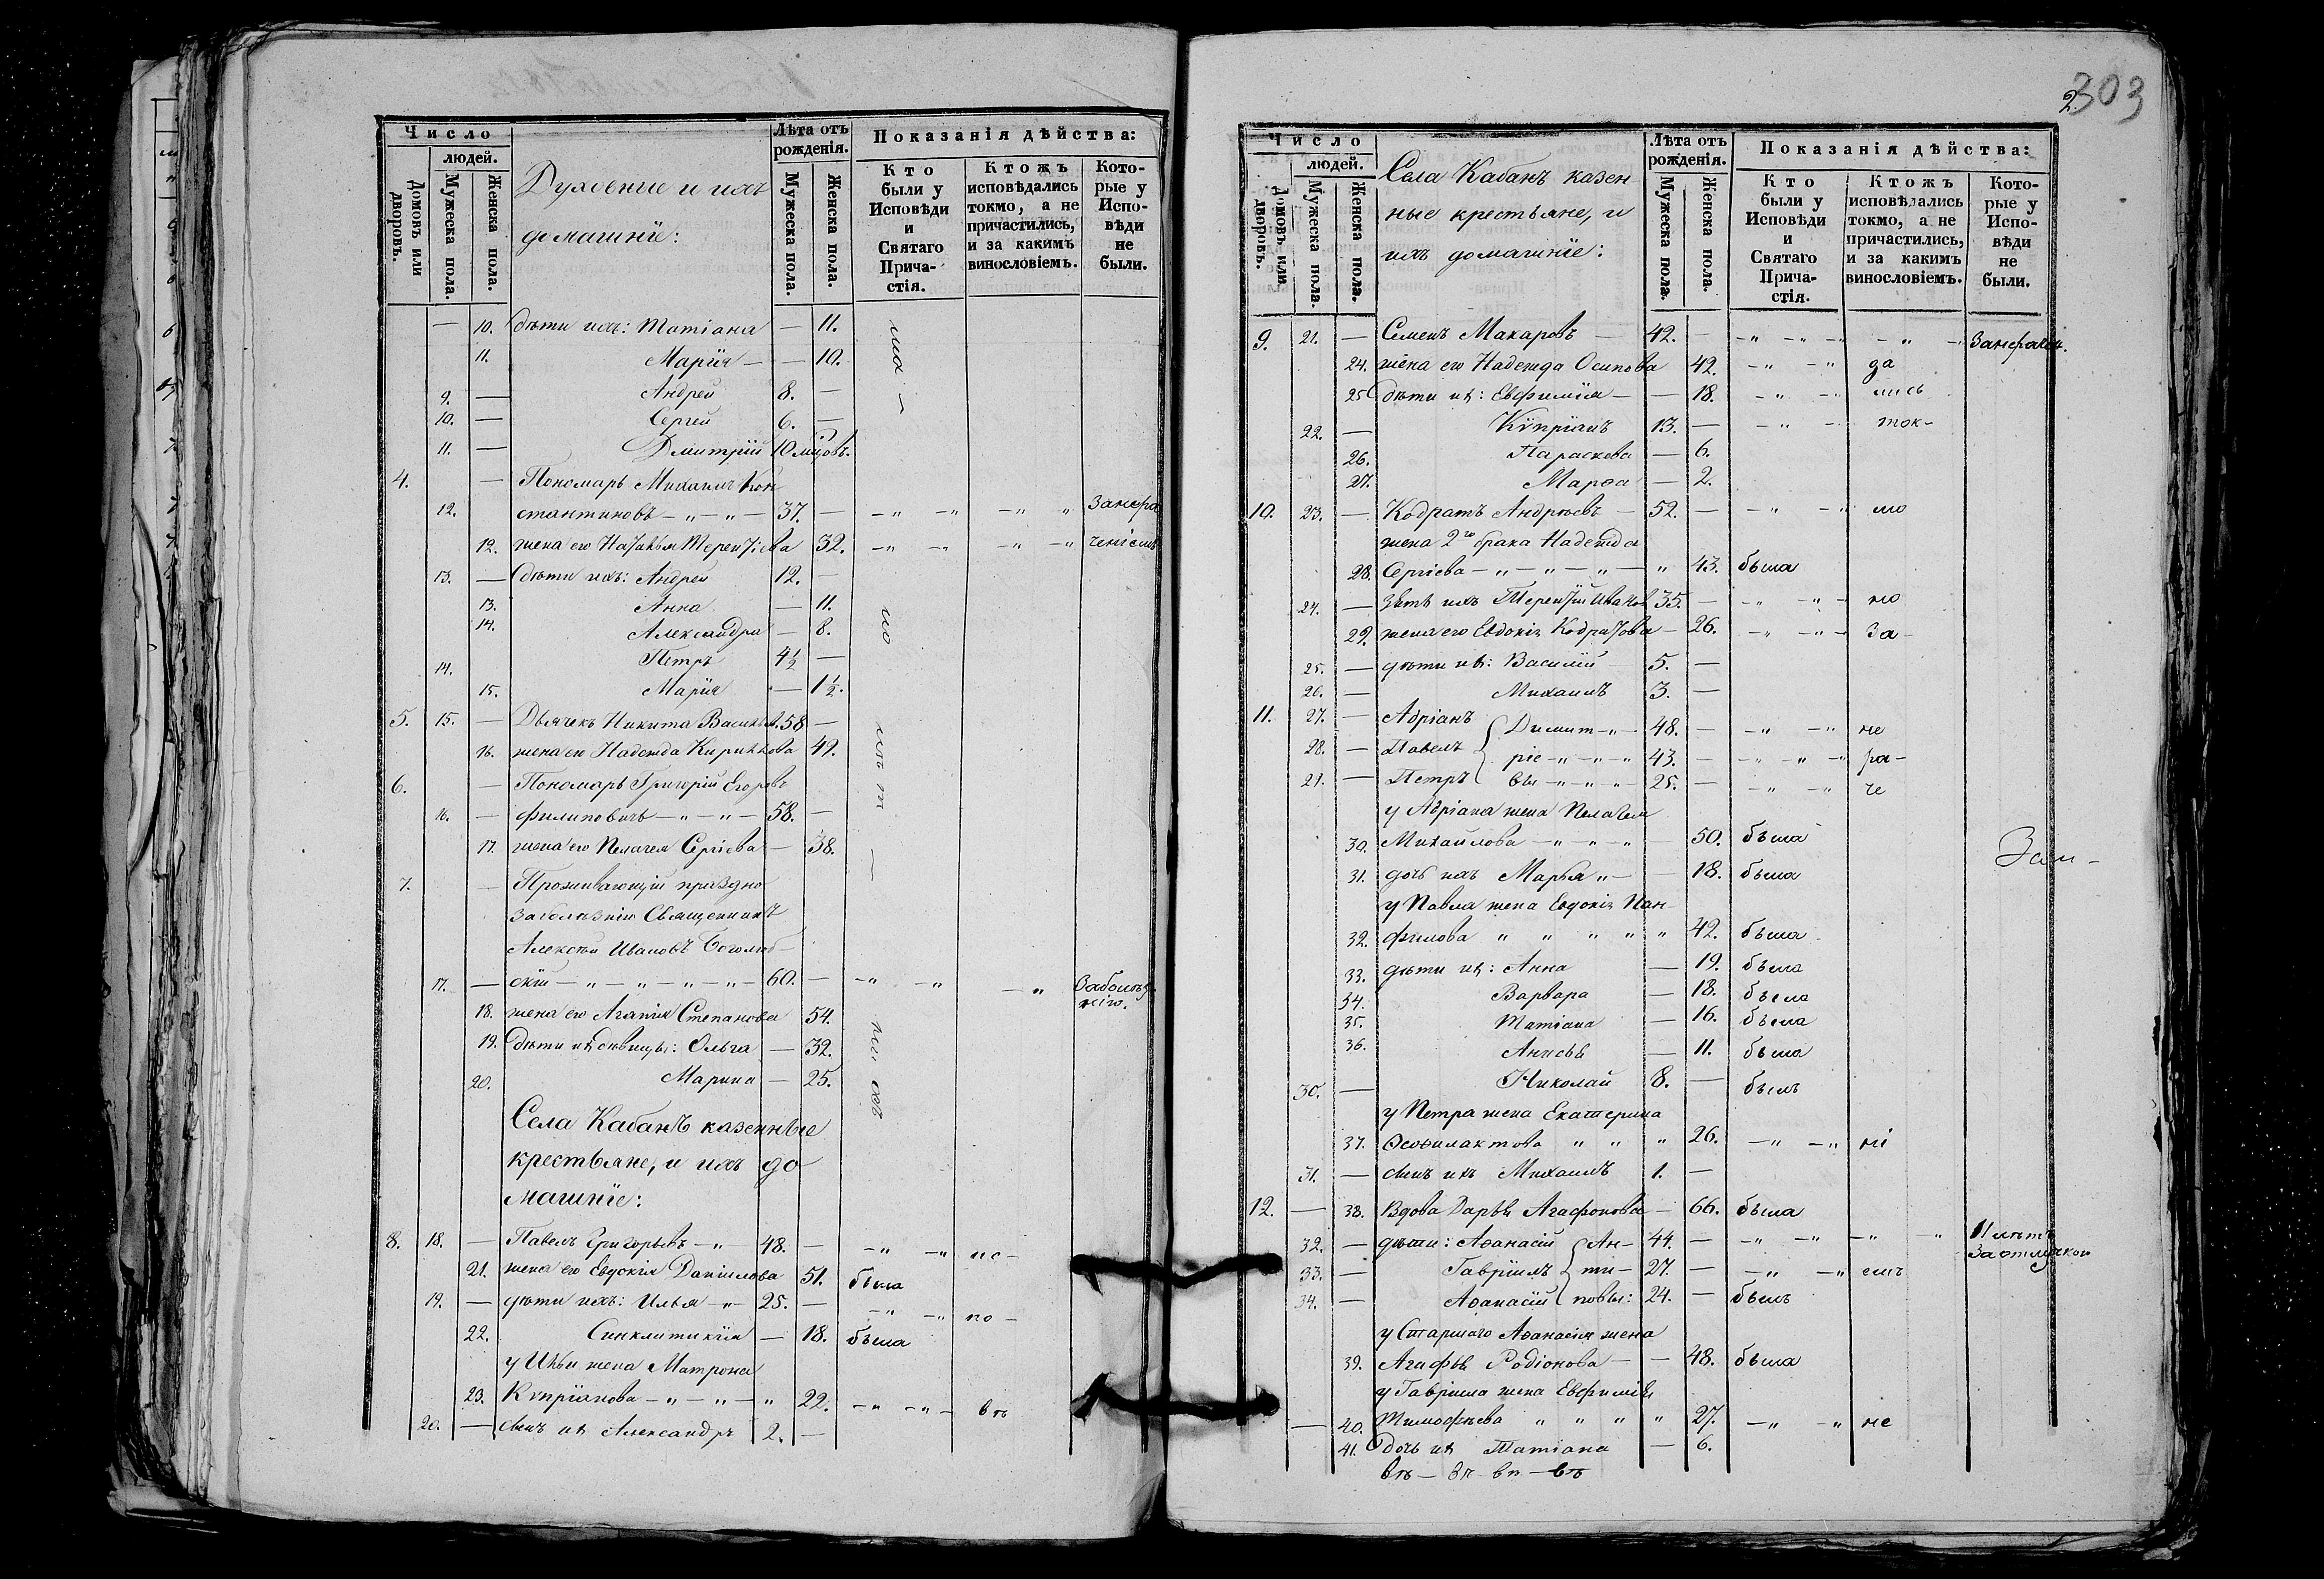 Число
людей.
Домовъ или дворовъ.
Мужеска пола.
Женска пола.
Духовные и ихъ
домашнїе:
Лѣта отъ рожденія.
Мужеска пола.
Женска пола.
Показанія дѣйства:
Кто были у Исповѣди и Святаго Прича-стія.
Ктожъ исповѣдались токмо, а не причастились, и за какимъ винословіемъ.
Кото-рые у Испо-вѣди не были.
10. дѣти ихъ: Татіана — 11.
11. Марїя — 10.
9. — Андрей 8. —
10. — Сергей 6. —
11. — Дмитрїй 10 мцовъ.
4. — Пономарь Михаилъ Кон
12. стантиновъ — 37. —
12. жена его Наталья Терентіева 32.
13. — дѣти ихъ: Андрей 12. —
13. Анна — 11.
14. Александра — 8.
14. Петръ 4½ —
15. Марїя — 1½.
5. 15. — Дьячекъ Никита Васильев. 58 —
16. жена его Надежда Кирилова 49.
6. — Пономарь Григорїй Егоровъ
16. — Филиповичъ 58. —
17. жена его Пелагея Сергіева — 38.
7. — Проживающїй праздно
за болѣзнію Священникъ
Алексѣй Ивановъ Боголюб-
17. — скїй 60. — За болѣз-
нію.
18. жена его Агапїя Степанова 54.
19. дѣти ихъ дѣвицы: Ольга — 32.
20. Марина — 25.
Села Кабанъ казенные
крестьяне, и ихъ до
машнїе:
8. 18. — Павелъ Григорьевъ 48. — ис-
21. жена его Евдокїя Данїилова 51. была
19. — дѣти ихъ: Илья 25. — по-
22. Синклитикїя — 18. была
у Ильи жена Матрона
23. Купрїанова 22. вѣ
20. — сынъ ихъ Александръ 2. —
303
Число
людей.
Домовъ или дворовъ.
Мужеска пола.
Женска пола.
Села Кабанъ казен-
ные крестьяне, и
ихъ домашнїе:
Лѣта отъ рожденія.
Мужеска пола.
Женска пола.
Показанія дѣйства:
Кто были у Исповѣди и Святаго Прича-стія.
Ктожъ исповѣдались токмо, а не причастились, и за какимъ винословіемъ.
Кото-рые у Испо-вѣди не были.
9. 21. — Семенъ Макаровъ — 42. —
24. жена его Надежда Осипова 42. да
25. дѣти ихъ: Евфимїя — 18. лись
22. — Кѵпрїанъ 13. — ток-
26. Параскева — 6.
27. Марѳа — 2.
10. 23. — Кодратъ Андреевъ — 52. — мо
жена 2го брака Надежда
28. Сергіева 43. была
24. — зять ихъ Терентїй Иванов 35. — но
29. жена его Евдокія Кодратова — 26. За-
25. — дѣти ихъ: Василїй 5. —
26. — Михаилъ 3. —
11. 27. — Адріанъ Димит 48. — не
28. — Павелъ ріе 43. — ра-
29. — Петръ вы 25. — че
у Адріана жена Пелагея
30. Михайлова — 50. была
31. дочь ихъ Марья — 18. была
у Павла жена Евдокія Пан-
32. филова 42. была
33. дѣти ихъ: Анна — 19. была
34. Варвара — 18. была
35. Татіана — 16. была
36. Анисья — 11. была
30. — Николай 8. — былъ
у Петра жена Екатерина
37. Ѳеофилактова 26. ні
31. — сынъ ихъ Михаилъ 1. —
12. — 38. Вдова Дарья Агафонова — 66. была
32. — дѣти: Аѳанасїй Ан- 44. — 11 лѣтъ
за отлучкой
33. — Гаврїилъ ти- 27. — емъ
34. — Аѳанасїй повы: 24. — былъ
у Старшаго Аѳанасія жена
39. Агафья Родіонова — 48. была
у Гавріила жена Евфимія
— 40. Тимофѣева 27. не
41. Дочь ихъ Татіана — 6.